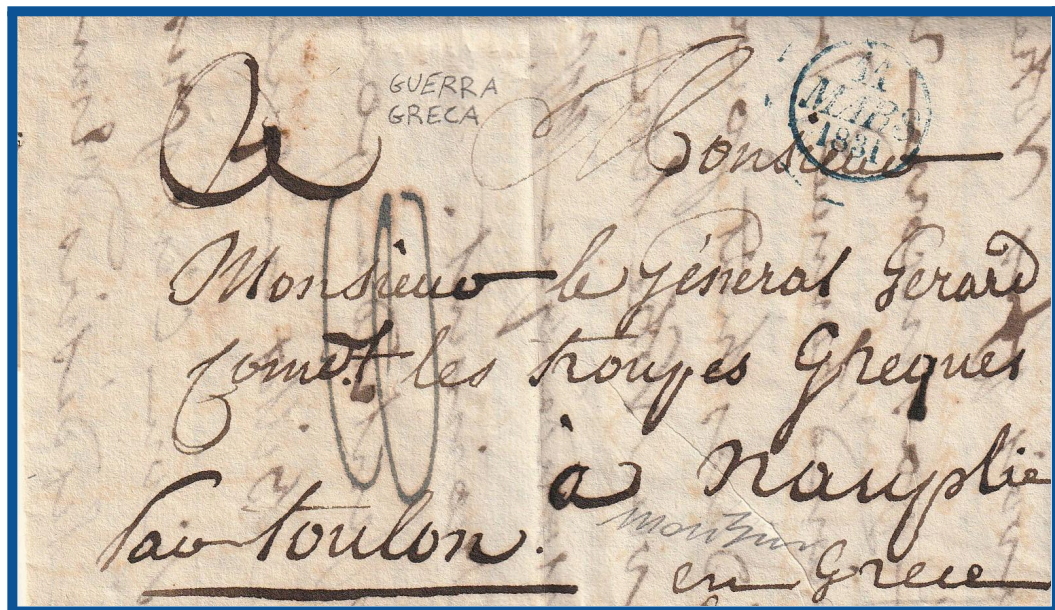 GUERRA
GRECA
11
MARS
1831
A Monsieur
Monsieur le général Gerard
Comdt les troupes Greques
à Nauplie
en Grece
par Toulon.